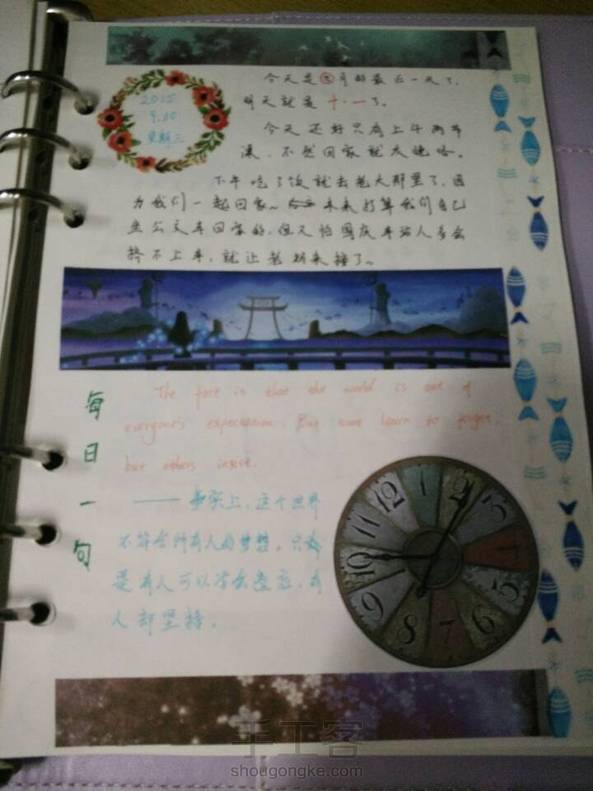 2015
9.30
星期三
今天是九月的最后一天了,
明天就是十·一了。
今天还好只有上午两节
课,不然回家就太晚咯。
下午吃了饭就去老大那里了,因
为我们一起回家~ 本来打算我们自己
坐公交车回家的,但又怕国庆车站人多会
挤不上车,就让老胡来接了~
每日一句
The fact is that the world is out of
everyone's expectation. But some learn to forget,
but others insist.
—— 事实上,这个世界
不符合所有人的梦想。只
是有人可以学会遗忘,有
人却坚持。
12
1
2
3
4
5
6
7
8
9
10
11
手工客
shougongke.com